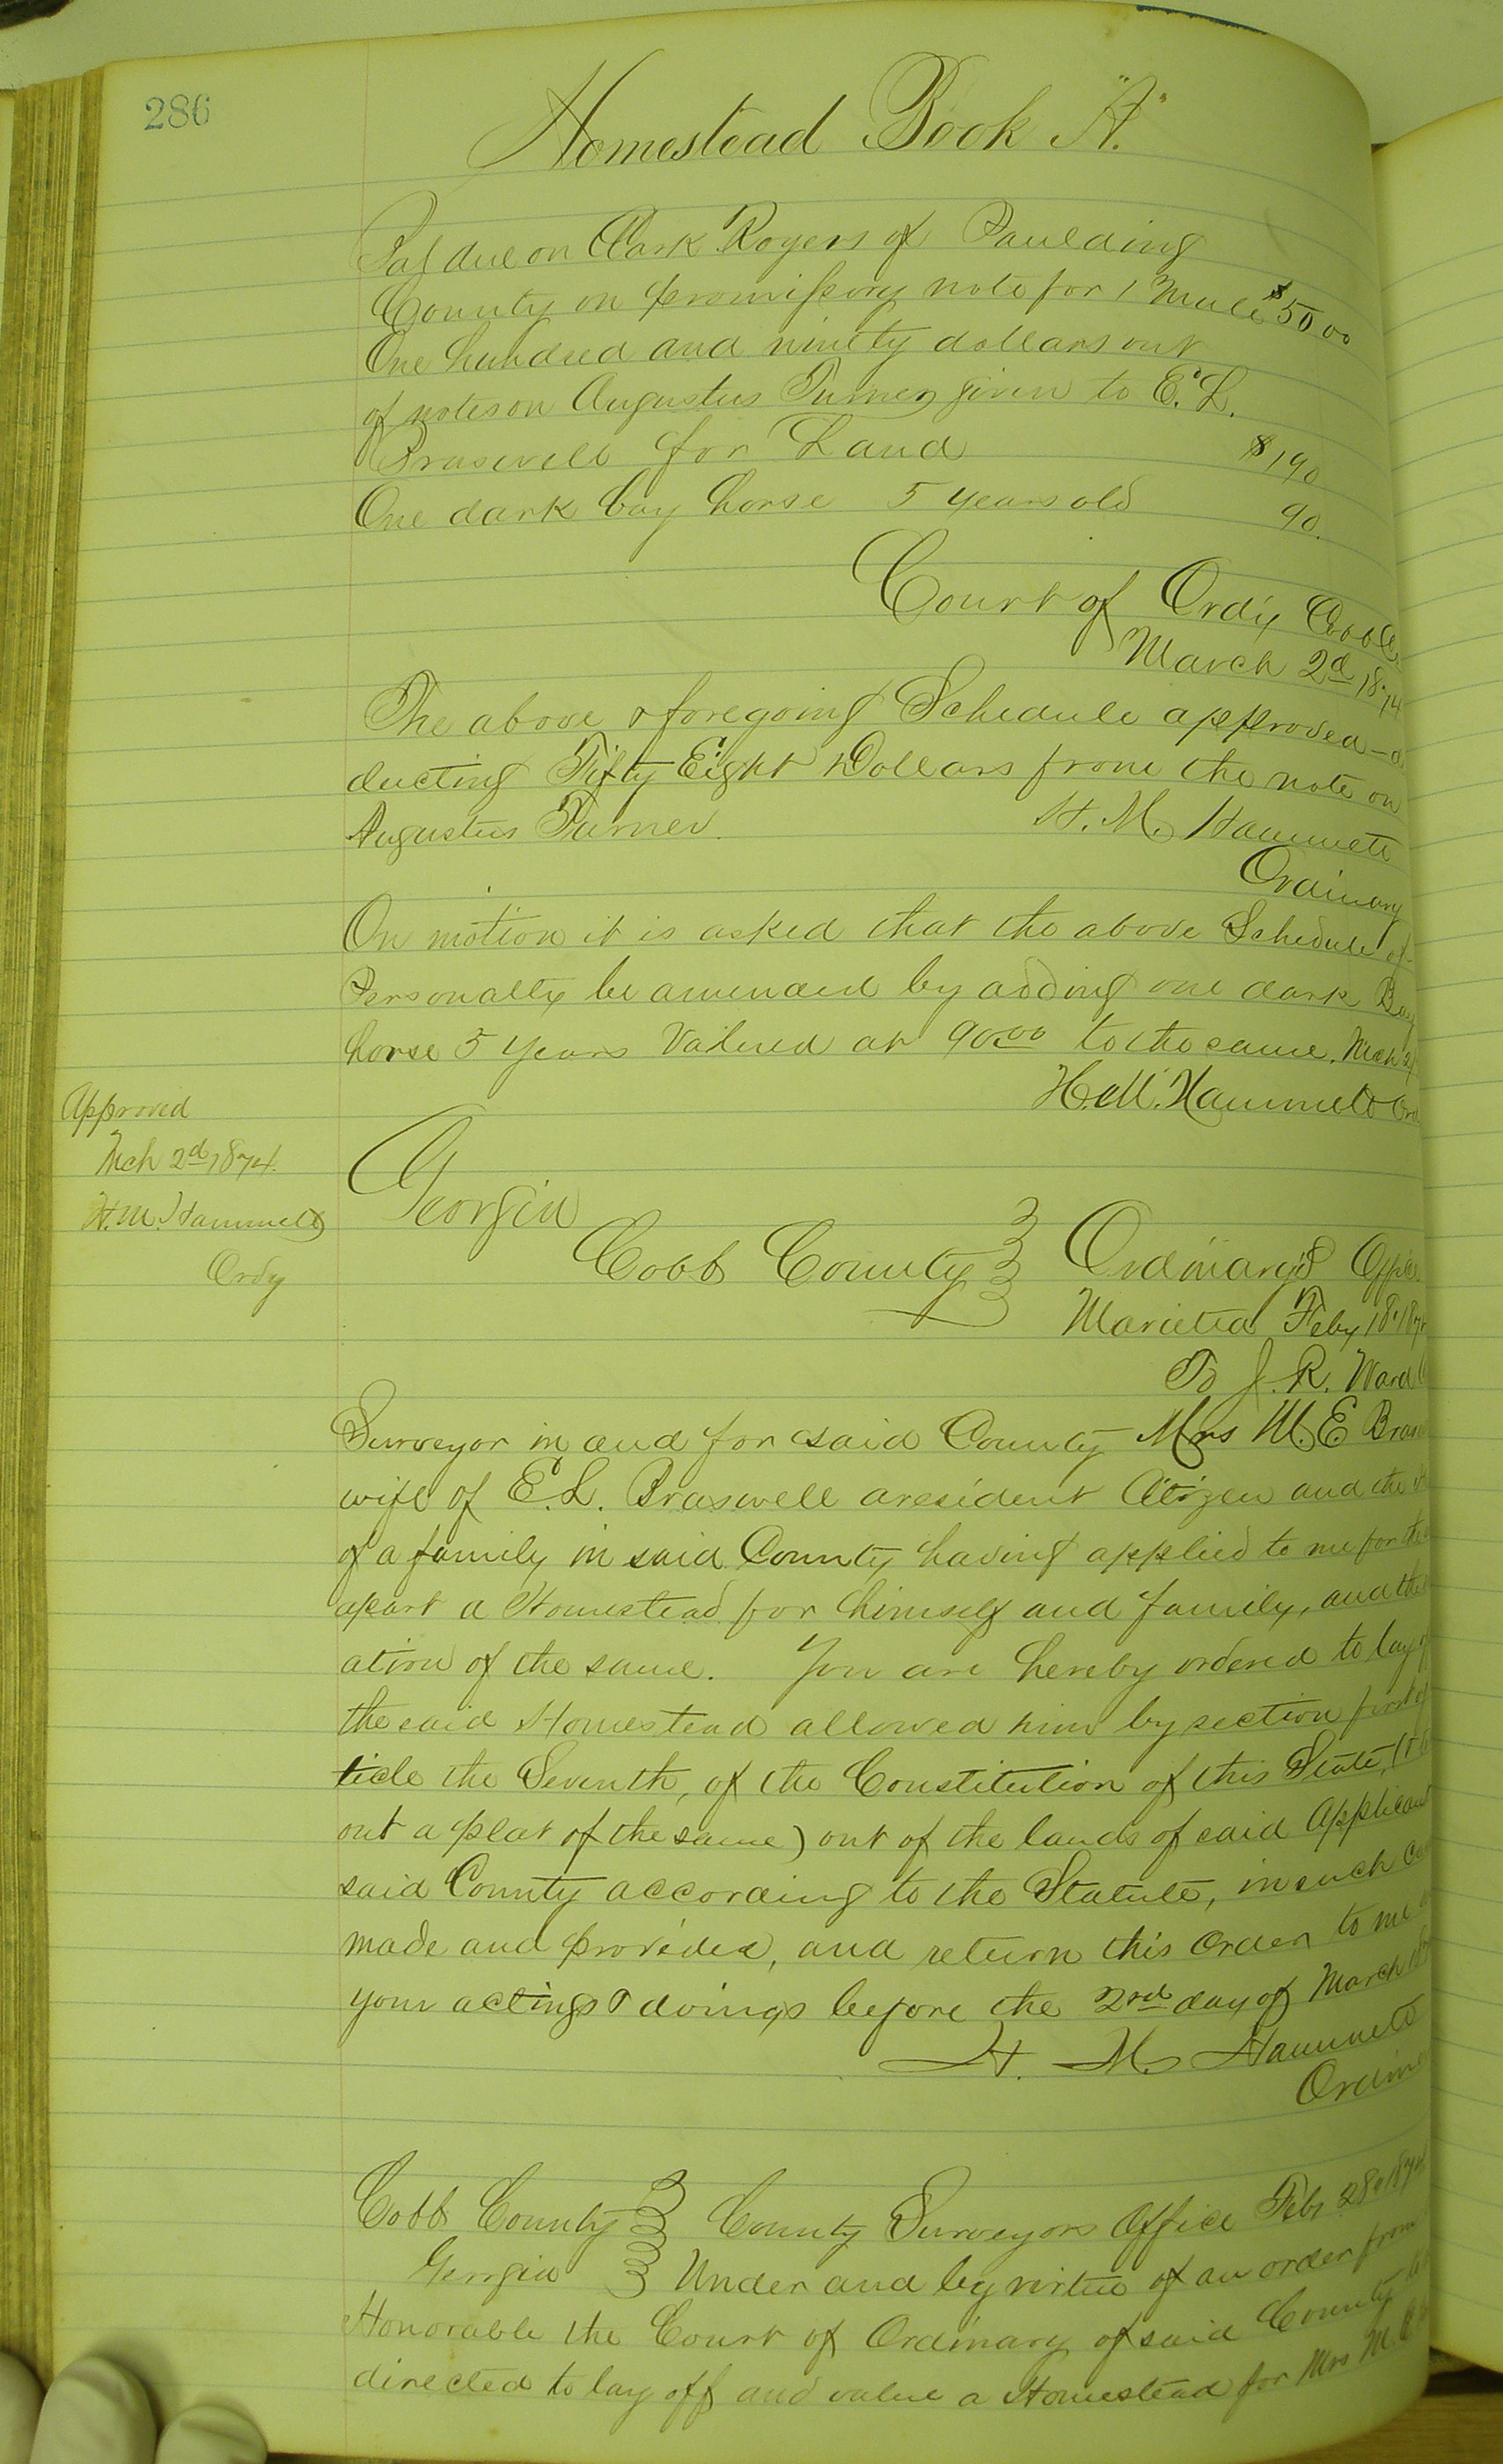 286
Homestead Book "A."
Bal due on Clark Rogers of Paulding
County on promissory note for 1 Mule $50 00
One hundred and ninety dollars out
of notes on Augustus Turner given to E. L.
Braswell for Land $190
One dark bay horse 5 years old 90.
Court of Ordy Cobb
March 2d 1874
The above & foregoing Schedule approved - d
ducting Fifty Eight Dollars from the note on
Augustus Turner. H. M. Hammett
Ordinary
On motion it is asked that the above Schedule of
Personalty be amended by adding one dark Bay
horse 5 years Valued at 90.00 to the same. Mch 2
H. M. Hammett Ord
Approved
Mch 2d 1874.
H. M. Hammett
Ordy
Georgia
Cobb County } Ordinary's Office
Marietta Feby 18. 187
To J. R. Ward
Surveyor in and for said County Mrs M. E Bras
wife of E. L. Braswell a resident Citizen and the
of a family in said County having applied to me for the
apart a Homestead for himself and family, and the
ation of the same. You are hereby ordered to lay of
the said Homestead allowed him by section first of
ticle the Seventh, of the Constitution of this State, (
out a plat of the same) out of the lands of said Applicant
said County according to the Statute, in such ca
made and provided, and return this order to me
your actings & doings before the 2nd day of March
H. M. Hammett
Ordin
Cobb County } County Surveyors Office Feb 28 1874
Georgia } Under and by virtue of an order from
Honorable the Court of Ordinary of said County
directed to lay off and value a Homestead for Mrs M.